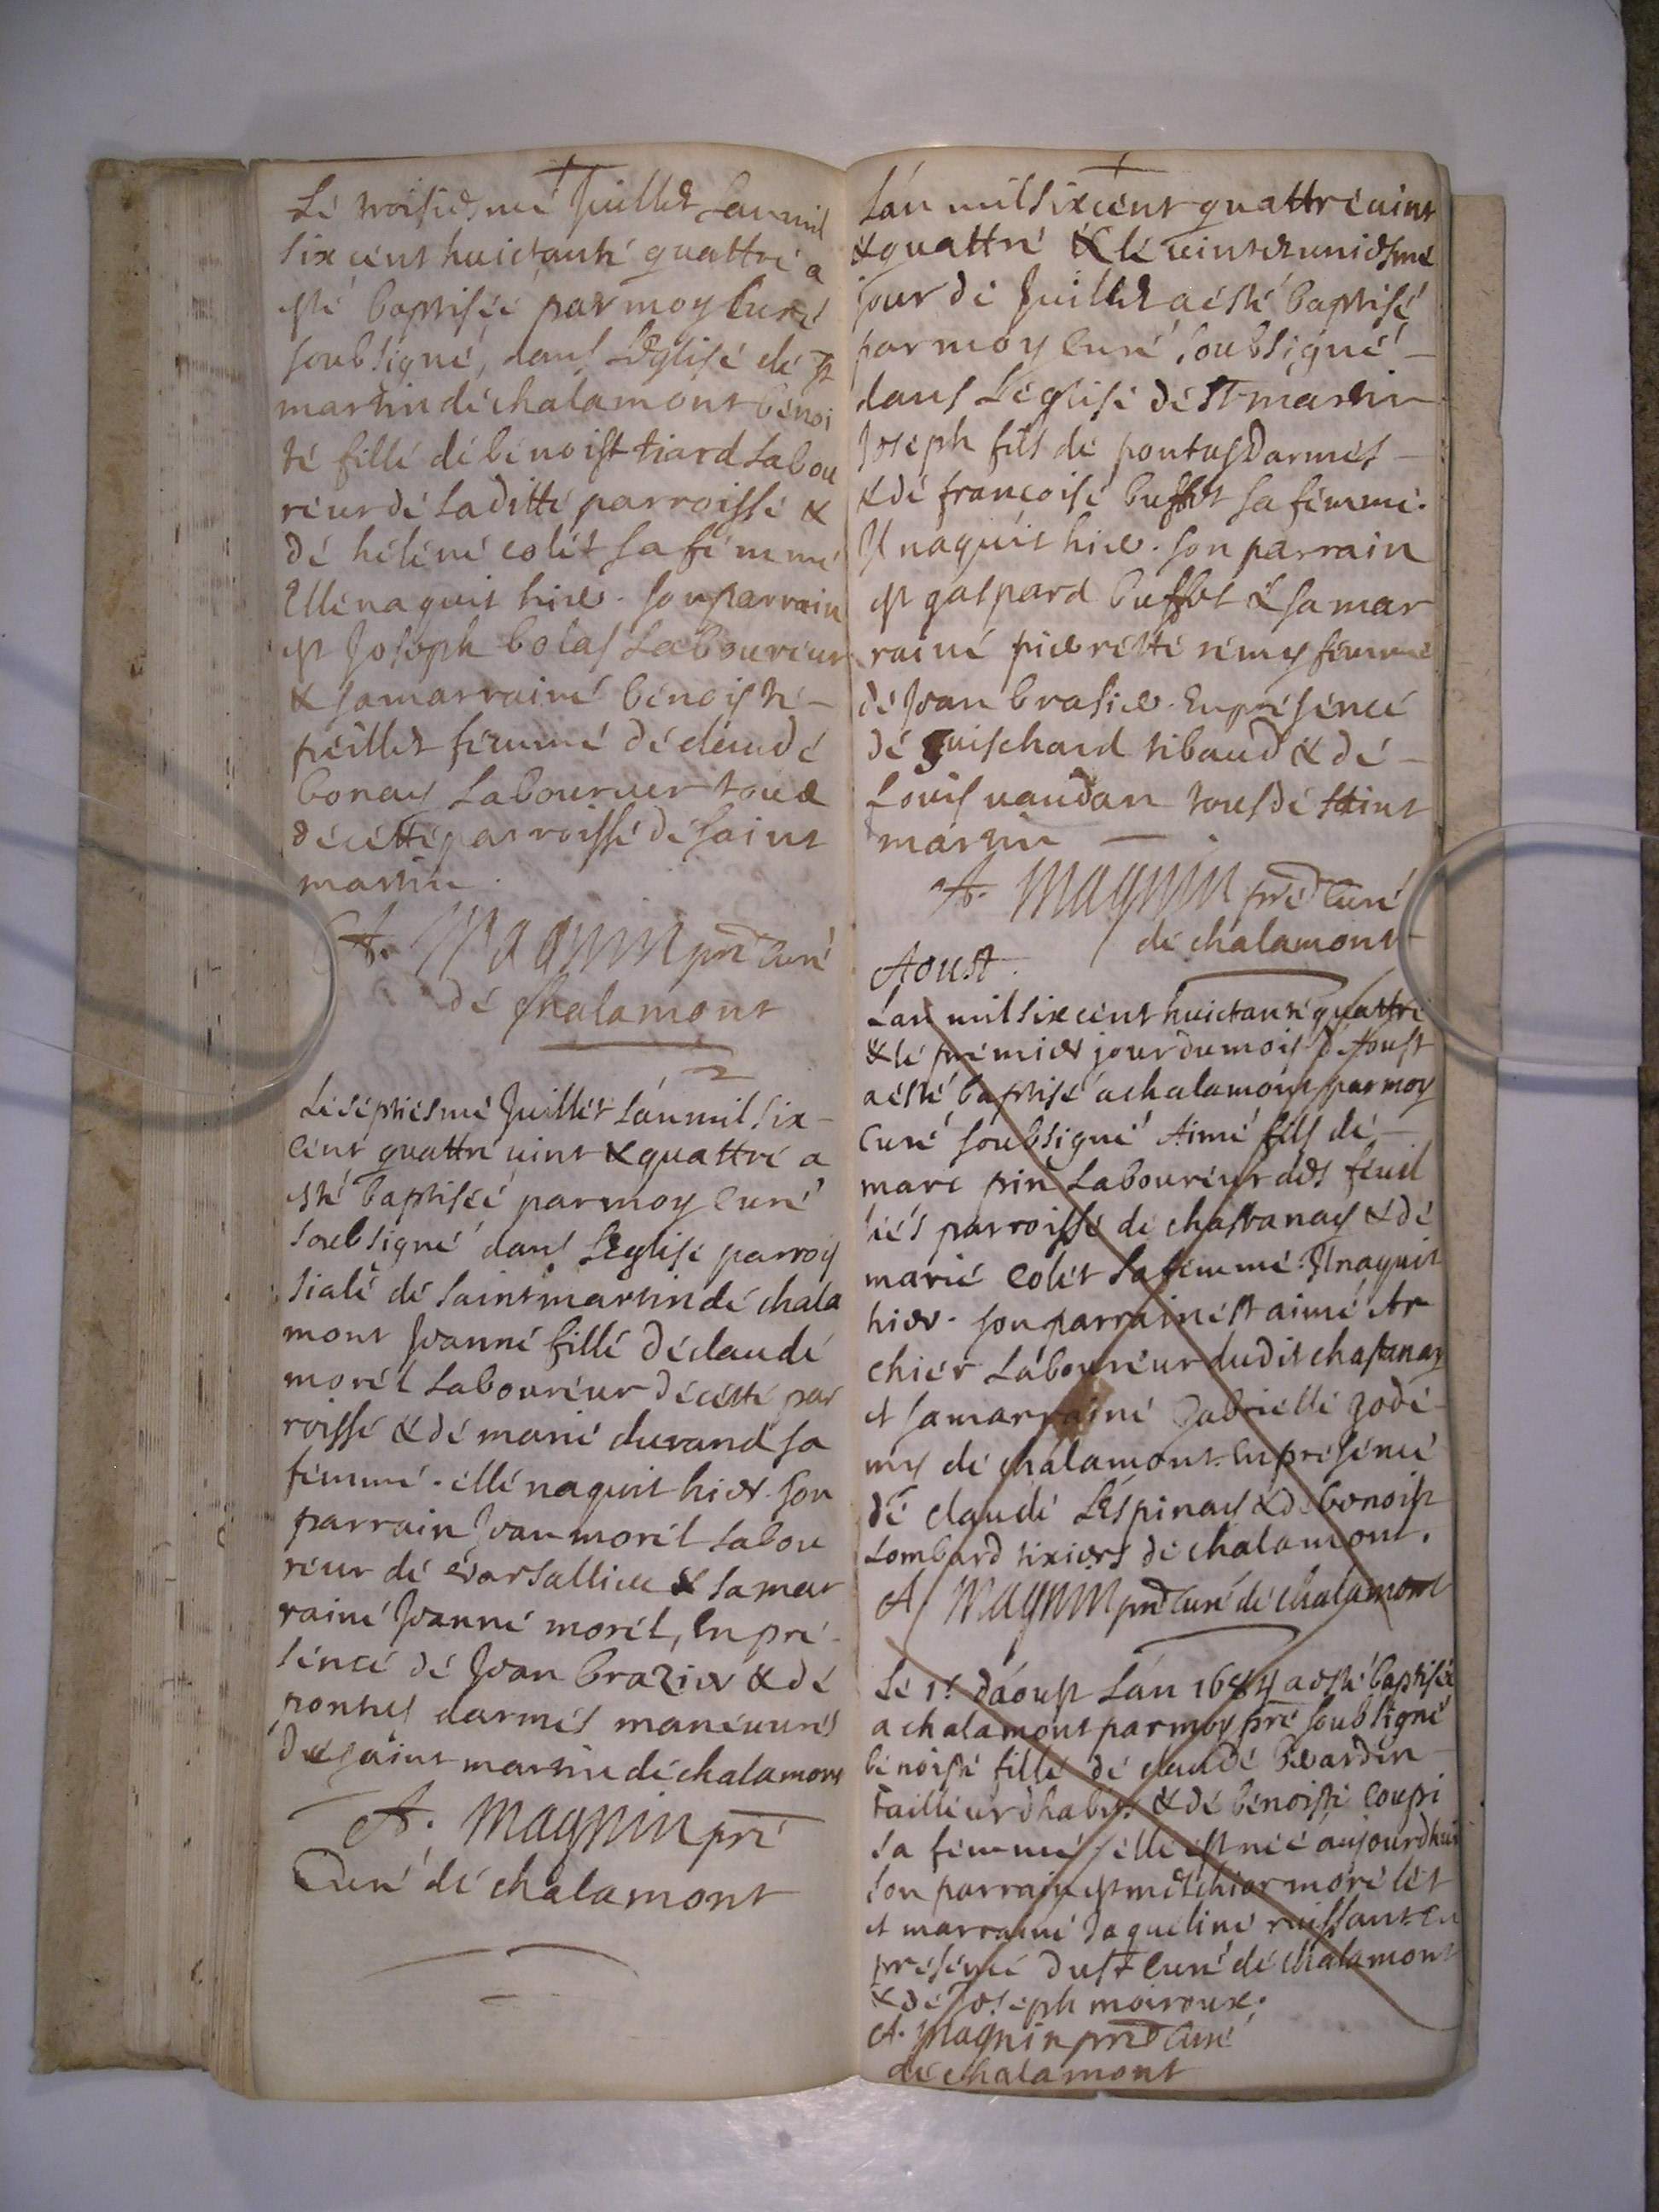 Le troisiesme Juillet Lan mil
six cent huictante quattre a
esté baptiseé par moy Curé
soubsigné, dans L'Eglise de st
martin de chalamont benoi
te fille de benoist tiard Labou
reur de Laditte parroisse &
de heléne colét sa femme
Elle naquit hier. son parrain
est Joseph bolas Laboureur
& sa marraine benoiste -
peillet femme de claude
bonay Laboureur tous
de cette parroisse de saint
martin.
A. Magnin pre Curé
de chalamont
Le séptiésme Juillet L'an mil six -
cent quattre vint & quattre a
esté baptiseé par moy Curé
soubsigné dans L'Eglise parrois
siale de saint martin de chala
mont Jeanne fille de claude
morél Laboureur de cette par
roisse & de marie durand sa
femme. elle naquit hier. son
parrain Jean morél Labou
reur de & sa mar
raine Jeanne morél, En pre-
sence de Jean brazier & de
pontus darmes maneuvres
de saint martin de chalamont
A. Magnin pre
Curé de chalamont
L'an mil six cent quattre vint
& quattre & le vint et uniesme
jour de Juillet a esté baptisé
par moy Curé soubsigné -
dans L'eglise de st martin
Joseph fils de pontus Darmes -
& de francoise buffet sa femme.
Il naquit hier. son parrain
est gaspard buffet & sa mar
raine pierrette remy femme
de Jean brasier. En presence
de guischard tibaud & de -
Louis vaudan tous de st saint
martin -
A. Magnin pre Curé
de chalamont
Aoust.
Lan mil six cent huictante quattre
& le premier jour du mois d'Aoust
a esté baptisé a chalamont par moy
Curé soubsigné Aimé fils de -
marc prin Laboureur des feuil
lés parroisse de chastanay & de
marie colét sa femme. Il naquit
hier. son parrain est aimé Ar
chier Laboureur dudit chastanay
et sa marraine Gabrielle gode-
my de chalamont. En presence
de claude L'Espinay & de benoist
Lombard tixiers de chalamont.
A. Magnin pre Curé de chalamont
Le 1r. d'aoust L'an 1684 a esté baptiseé
a chalamont par moy pre soubsigné
benoiste fille de claude bedardin -
tailleur dhabits & de benoiste coupi
sa femme / elle est neé aujourdhui
son parrain est melchior moré lét
et marraine Jaqueline ruissant. En
presence dust Curé de chalamont
& de Joseph moiroux.
A. Magnin pre Curé
de chalamont